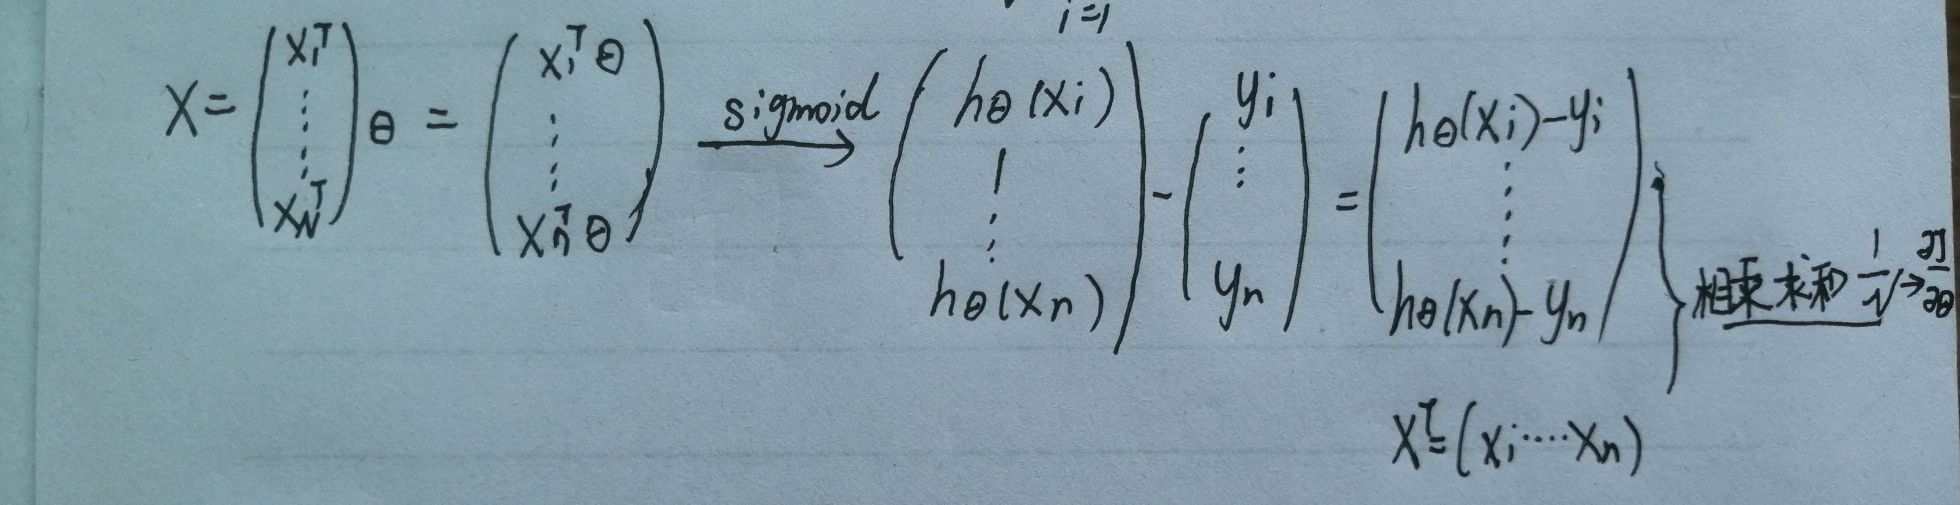 i=1
X = (x₁ᵀ ⋮ x_Nᵀ) θ = (x₁ᵀθ ⋮ xₙᵀθ) sigmoid → (hθ(xi) ⋮ hθ(xn)) - (yi ⋮ yn) = (hθ(xi)-yi ⋮ hθ(xn)-yn) } 相乘求和 1/N → ∂J/∂θ
Xᵀ=(xi·····xn)